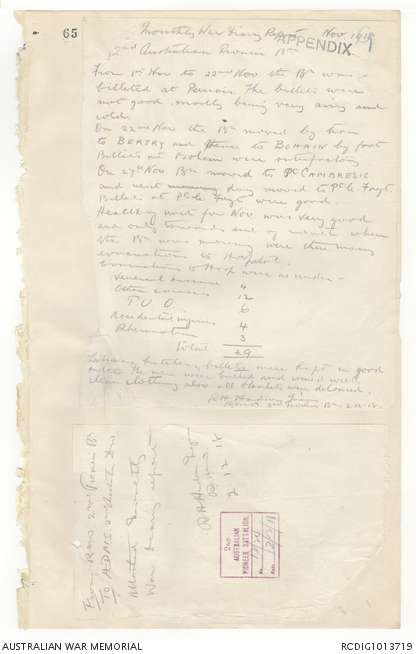 65
Monthly War Diary Report Nov 1918
APPENDIX
2nd Australian Pioneer Bn
From 1st Nov to 22nd Nov the Bn was
billeted at Peruois. The billets were
not good mostly being very airy and
cold.
On 22nd Nov the Bn moved by train
to BERTRY and thence to BOHAIN by foot
Billets at Bohain were satisfactory
On 27th Nov Bn moved to CAMBRESIS
and next day moved to Pt le Fayt.
Billets at Pt le Fayt were good.
Health of unit for Nov was very good
and only towards end of month when
the Bn was moving were there many
evacuations to Hospital.
Evacuations to Hosp were as under -
Venereal disease 4
Other causes 12
P.U.O. 6
Accidental injuries 4
Rheumatism 3
Total 29
Latrines, kitchens, billets were kept in good
order. The men were bathed and issued with
clean clothing also all blankets were
RMO 2nd Pioneer Bn 2.12.18.
From RMO 2nd Pioneer Bn
To ADMS 2nd Aust Div
Attached monthly
War Diary report
2 12 18
2ND
AUSTRALIAN
PIONEER BATTALION
No.
Date
AUSTRALIAN WAR MEMORIAL
RCDIG1013719